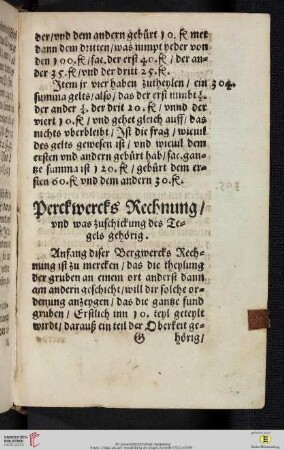 der/vnd dem andern gebürt 10. fl. mer
dann dem dritten/was nimpt yeder von
den 100. fl./fac. der erst 40. fl./ der an-
der 35. fl./vnd der dritt 25. fl.
Item jr vier haben zutheylen/ ein
304.
summa gelts/also/das der erst nimbt
der ander der drit 20. fl./ vnnd der
viert 10. fl./ vnd gehet gleich auff/ das
nichts vberbleibt/ Ist die frag/ wieuil
des gelts gewesen ist/ vnd wieuil dem
ersten vnd andern gebürt hab/fac. gan-
tze summa ist 120. fl./ gebürt dem er-
sten 60. fl. vnd dem andern 30. fl.
Perckwercks Rechnung/
vnd was zuschickung des Te-
gels gehörig.
Anfang diser Bergwercks Rech-
nung ist zu mercken/ das die theylung
der gruben an einem ort anderst dann
am andern geschicht/will dir solche or-
denung anzeygen/ das die gantze fund
gruben/ Erstlich inn 10. teyl geteylt
wirdt/ darauß ein teil der Oberkeit ge-
G hörig/